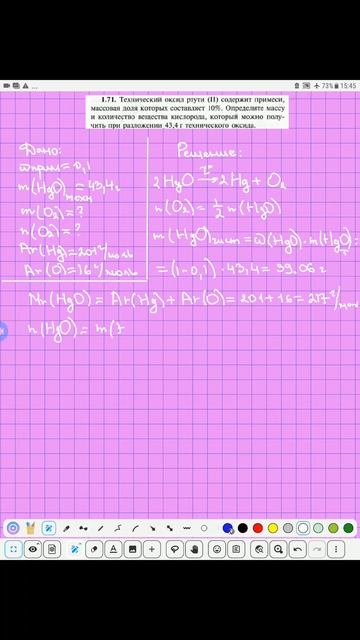 15:45
73%
1.71. Технический оксид ртути (II) содержит примеси,
массовая доля которых составляет 10%. Определите массу
и количество вещества кислорода, который можно полу-
чить при разложении 43,4 г технического оксида.
Дано:
ωприм = 0,1
m(HgO)техн = 43,4 г
m(O₂) = ?
n(O₂) = ?
Ar(Hg) = 201 г/моль
Ar(O) = 16 г/моль
Решение:
2HgO →t° 2Hg + O₂
n(O₂) = 1/2 n(HgO)
m(HgO)чист = ω(HgO)·m(HgO)т =
= (1-0,1)·43,4 = 39,06 г
Mr(HgO) = Ar(Hg) + Ar(O) = 201 + 16 = 217 г/моль
n(HgO) = m(